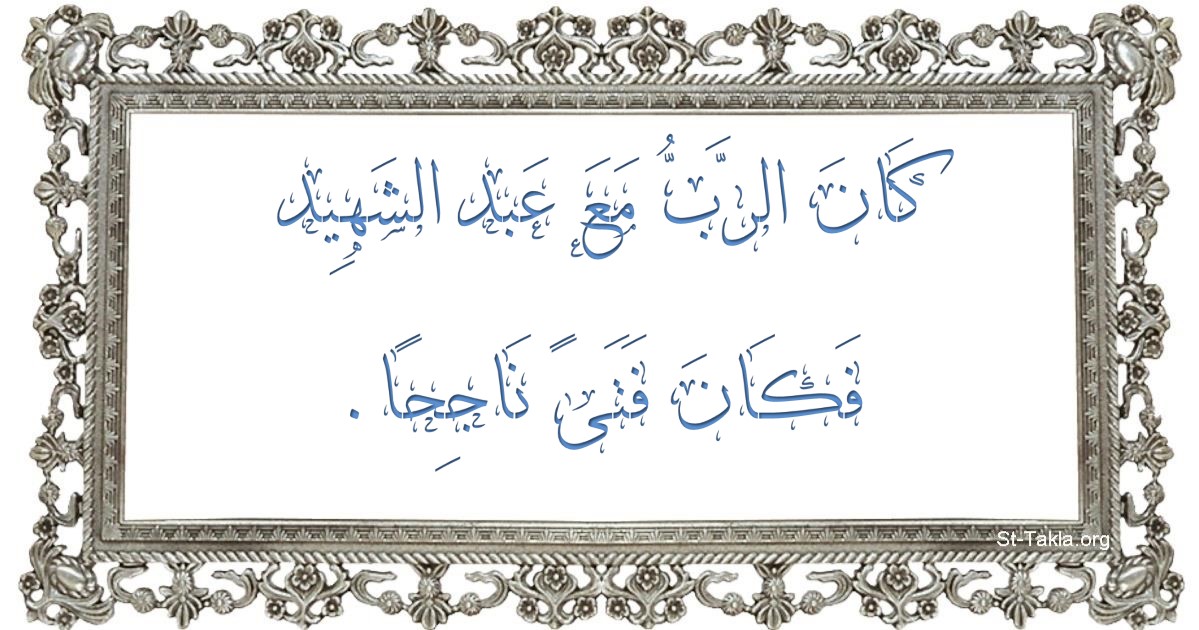 كَانَ الرَّبُّ مَعَ عَبْد الشَهِيِد
فَكَانَ فَتَىً نَاجِحًا .
St-Takla.org